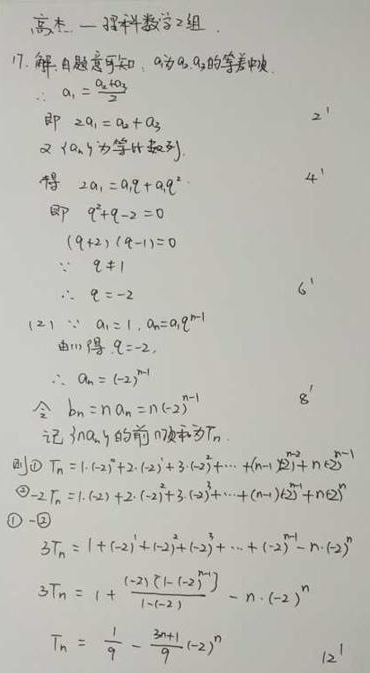 高杰一理科数学2组.
17. 解: 由题意可知, a₁为a₂,a₃的等差中项.
∴ a₁ = (a₂+a₃)/2
即 2a₁ = a₂+a₃ 2'
又 {aₙ}为等比数列,
得 2a₁ = a₁q + a₁q² 4'
即 q²+q-2=0
(q+2)(q-1)=0
∵ q≠1
∴ q=-2 6'
(2) ∵ a₁=1, aₙ=a₁qⁿ⁻¹
由(1)得 q=-2,
∴ aₙ=(-2)ⁿ⁻¹
令 bₙ=naₙ=n(-2)ⁿ⁻¹ 8'
记{naₙ}的前n项和为Tₙ.
则① Tₙ=1·(-2)⁰+2·(-2)¹+3·(-2)²+…+(n-1)(-2)ⁿ⁻²+n(-2)ⁿ⁻¹
② -2Tₙ=1·(-2)+2·(-2)²+3·(-2)³+…+(n-1)(-2)ⁿ⁻¹+n(-2)ⁿ
①-②
3Tₙ=1+(-2)¹+(-2)²+(-2)³+…+(-2)ⁿ⁻¹-n·(-2)ⁿ
3Tₙ = 1+ (-2)[1-(-2)ⁿ⁻¹]/(1-(-2)) - n·(-2)ⁿ
Tₙ = 1/9 - (3n+1)/9 (-2)ⁿ 12'